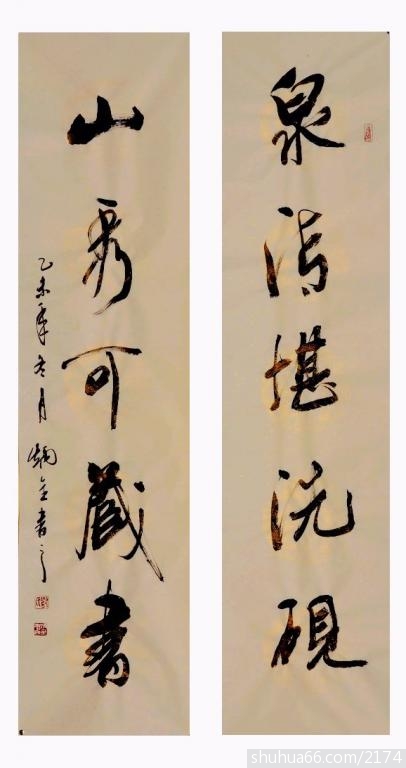 泉清堪洗砚
山秀可藏書
乙未年冬月
shuhua66.com/2174